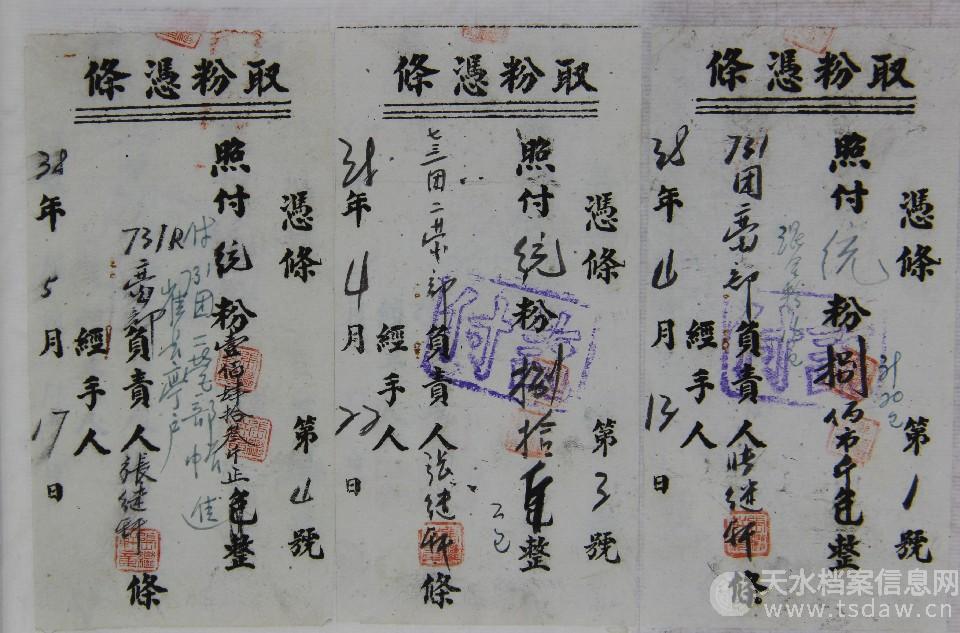 取粉憑條
憑條 第1號
照付 统 粉 捌佰市斤包整
计20包
731团 部負責人 張继軒 條
經手人
38年4月13日
付訖
取粉憑條
憑條 第3號
照付 统 粉 捌拾 整
2包
七三一团二 部負責人 張继軒 條
經手人
38年4月22日
付訖
取粉憑條
憑條 第4號
照付 统 粉 壹佰肆拾叁斤正包整
付731团二 部
731R 部負責人 張继軒 條
經手人
38年5月17日
天水档案信息网
www.tsdaw.cn